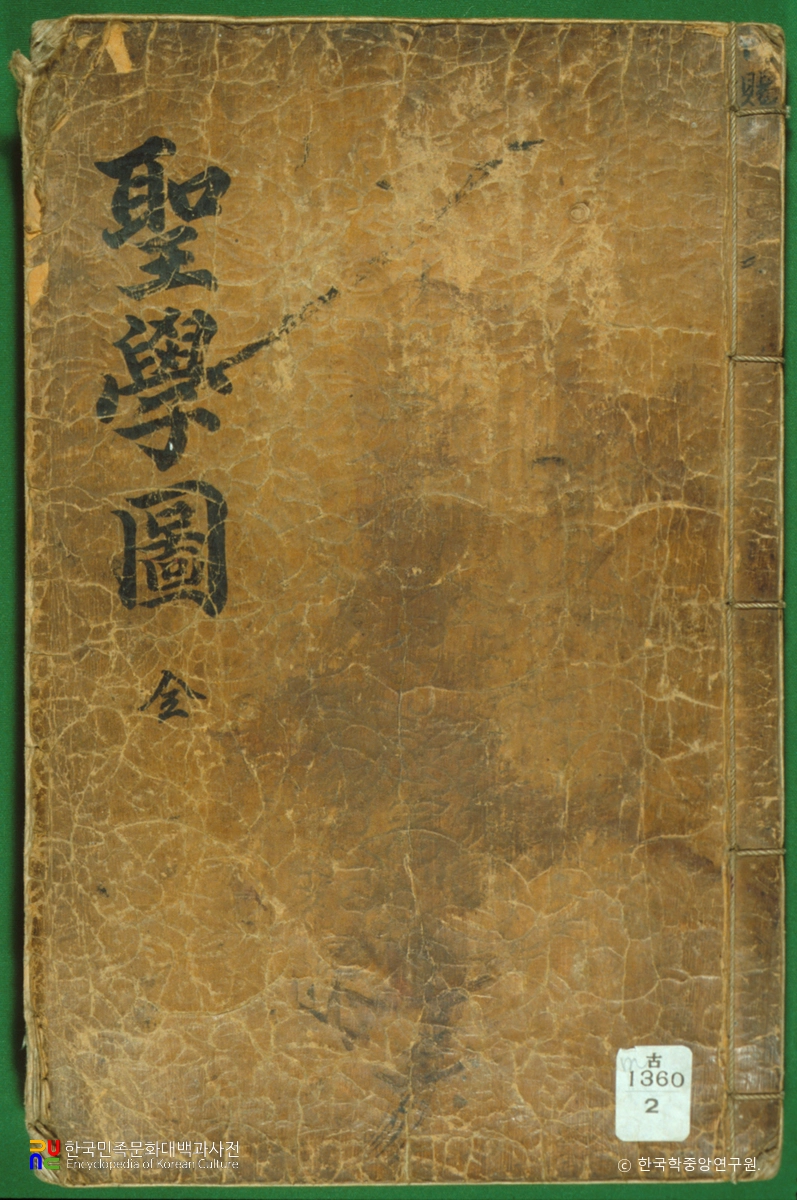 聖學圖 全
古
1360
2
한국민족문화대백과사전
Encyclopedia of Korean Culture
© 한국학중앙연구원.